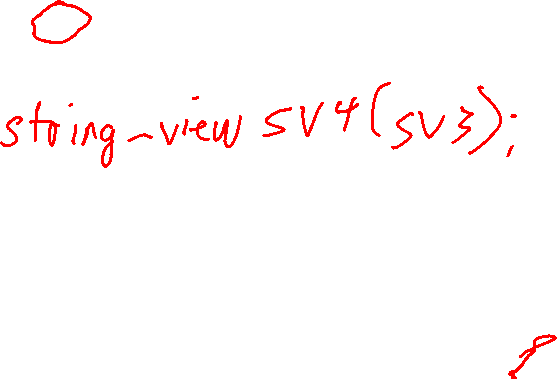 string_view sv4(sv3);